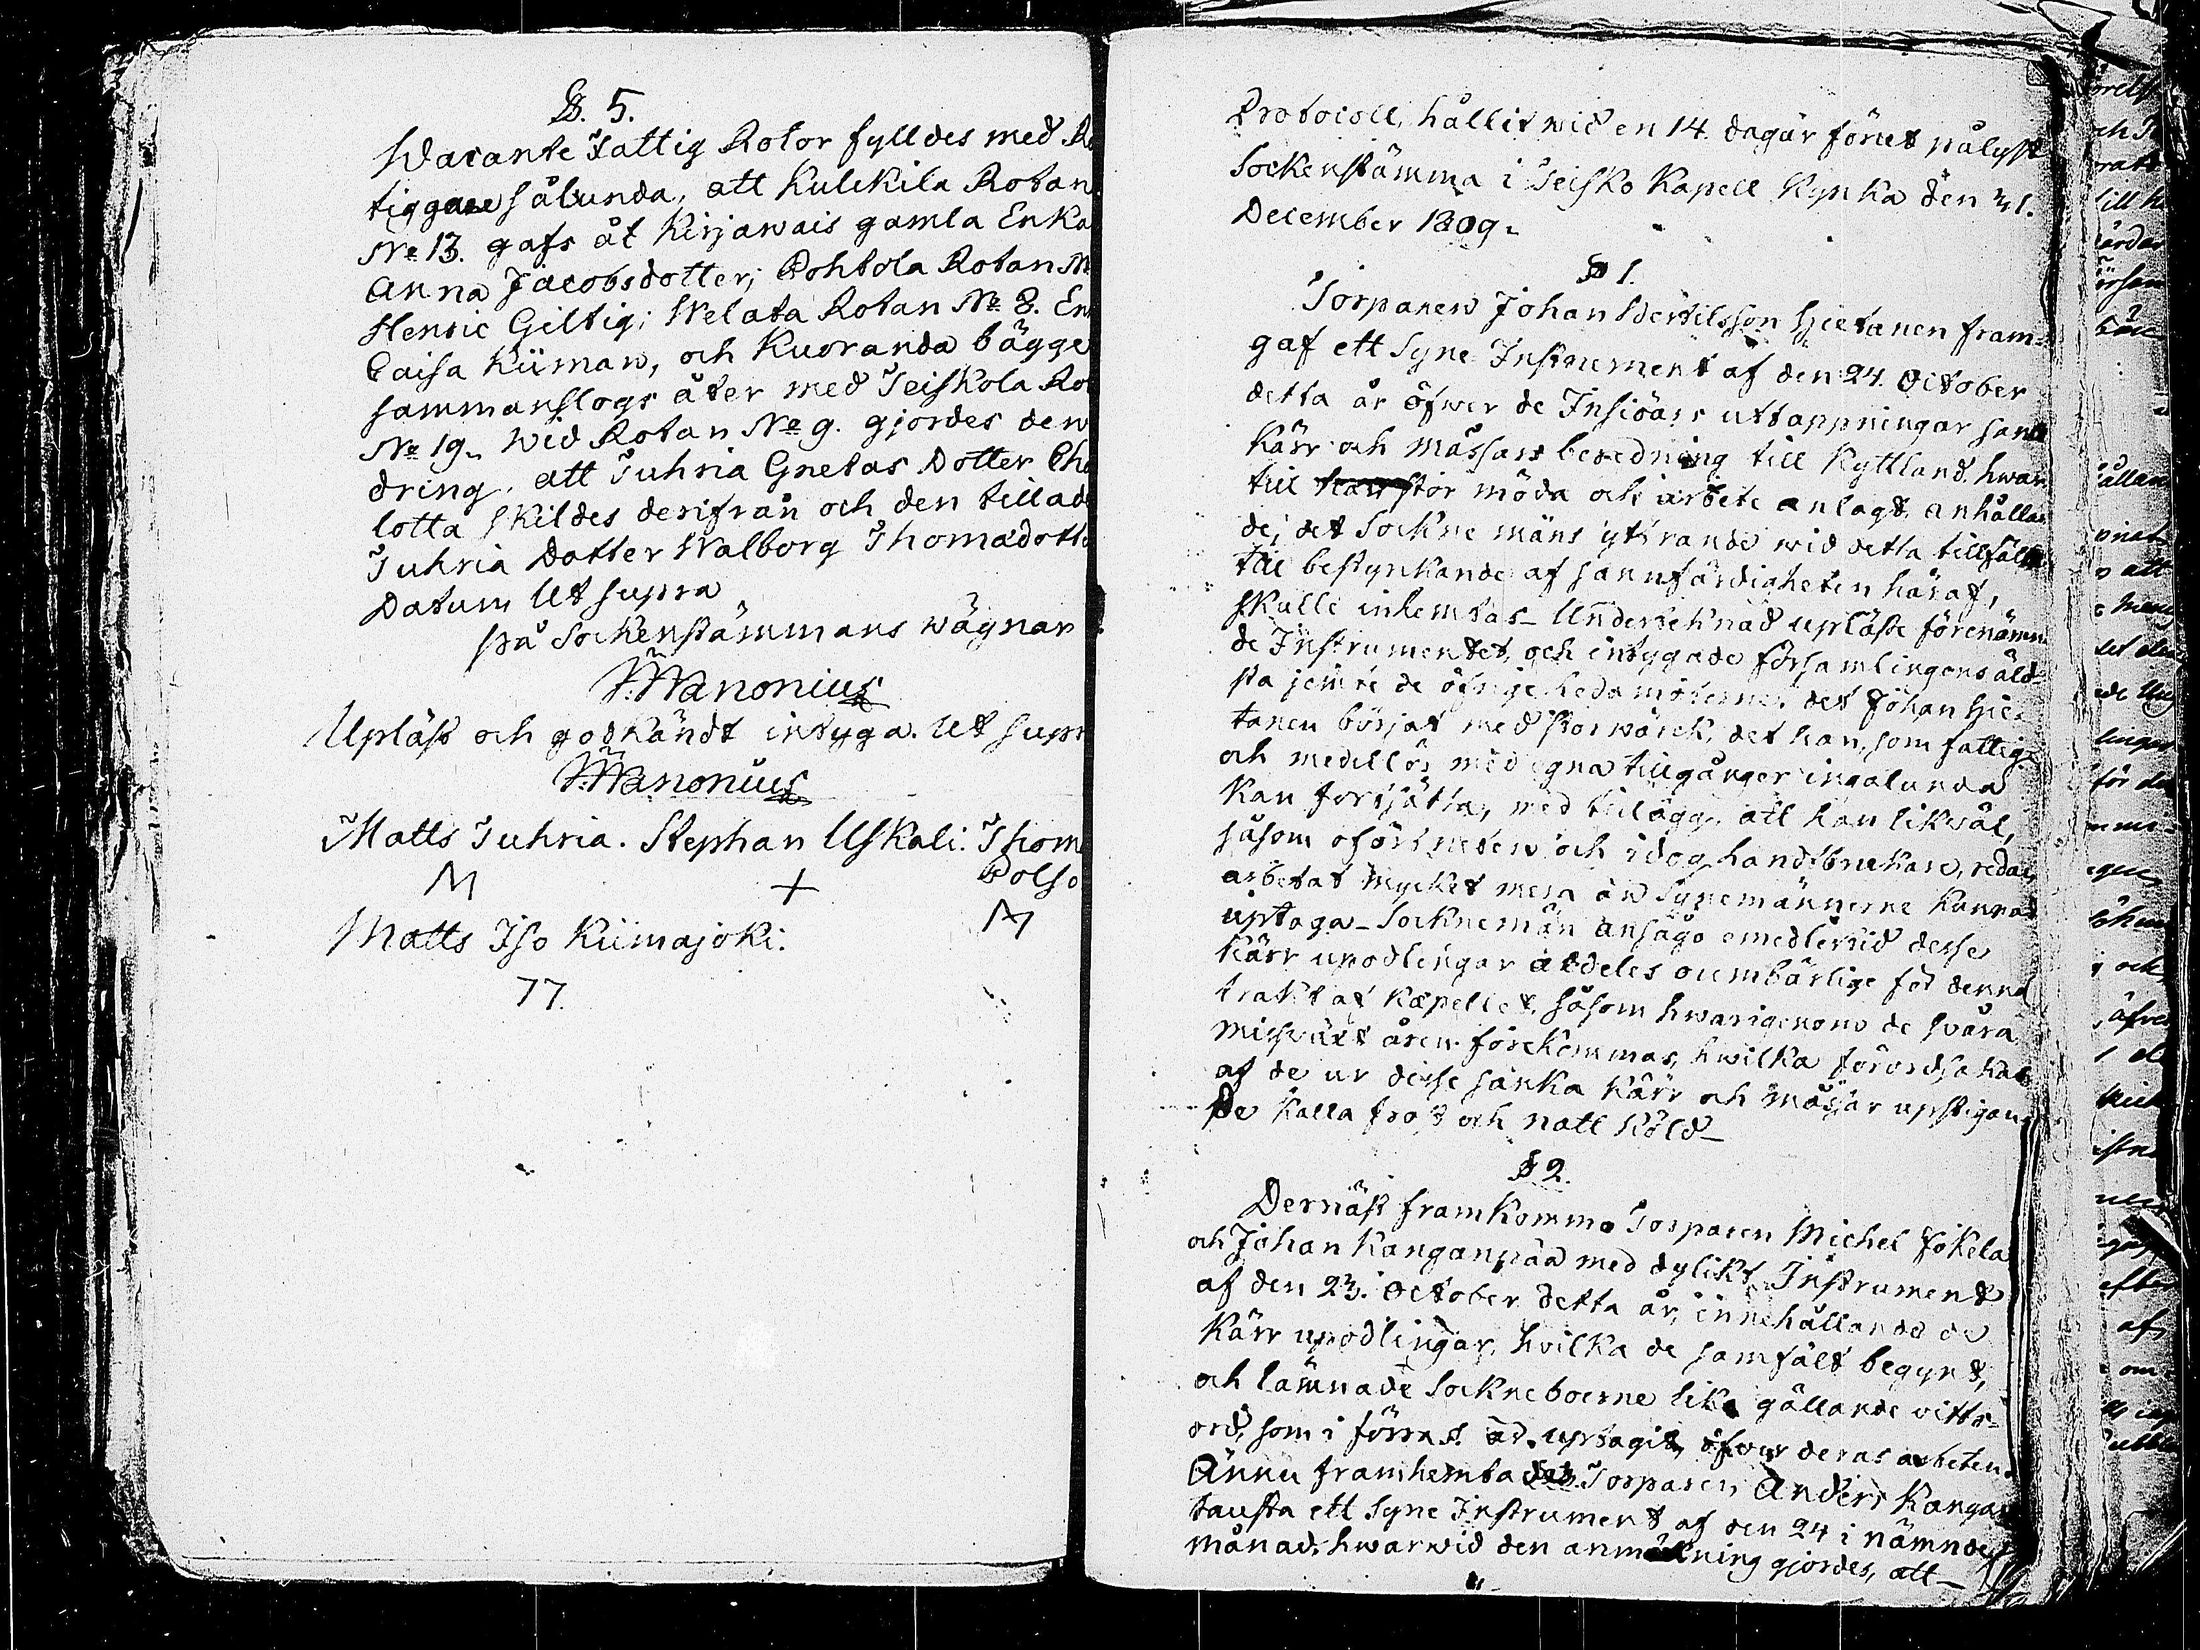 §. 5.
Wacante Fattig Rotor fylldes med Ro
tiggare sålunda, att Kulckila Rotan
No 13. gafs åt Kirjawais gamla Enka
Anna Jacobsdotter; Pohtola Rotan N
Henric Giltig; Welata Rotan No 8. En
Caisa Kiiman, och Kuoranda bägge
sammanslogs åter med Teiskola Rot
No 19. wid Rotan No 9. gjordes den
dring, att Juhria Gretas Dotter Cha
lotta skildes derifrån och den tillade
Juhria Dotter Walborg Thomædotte
Datum Ut supra
På Sockenstämmans wägnar
F. Wanonius
Upläst och godkändt intyga. Ut supr
F. Wanonius
Matts Juhria. Stephan Uskali. Thom
M + Polso
M
Matts Iso Kiimajoki.
77.
Protocoll, hållit wid en 14. dagar förut pålyst
Sockenstämma i Teisko Kapell Kyrka den 31.
December 1809.
§ 1.
Torparen Johan Bertilsson Hietanen fram-
gaf ett Syne Instrument af den 24. October
detta år öfwer de Insiöars uttappningar samt
Kärr och Måssars beredning till Kyttland, hwar
till stor möda och arbete anlagt, anhållan
de, det Sockne mäns yttrande wid detta tillfälle
till bestyrkande af sannfärdigheten häraf,
skulle inhemtas_ Undertecknad upläste förenämn
de Instrumentet, och intygade församlingens äld-
sta jemte de öfrige ledamöterne, det Johan Hie-
tanen börjat med stor wärck, det han, som fattig
och medellös med egna tillgångar ingalunda
kan fortsätta, med tillägg, att han likwäl,
såsom oförtruten och idog handtbrukare, redan
arbetat mycket mera än Synemännerne kunnat
uptaga_ Socknemän ansågo emedlertid desse
Kärr upodlingar aldeles oumbärlige för denna
trakt af Kapellet, såsom hwarigenom de swåra
misswäxt åren förekommas, hwilka förordsakas
af de ur desse sanka Kärr och måssar upstigan
de kalla fro och natt köld_
§ 2.
Dernäst framkommo Torparen Michel Jokela
och Johan Kanganpää med dylikt Instrument
af den 23. October detta år, innehållande de
Kärr upodlingar, hvilka de samfält begynt,
och lämnade Sockneboerne lika gällande vitts-
ord, som i förra §. är uptagit, öfwer deras arbeten.
Ännu framhemtades Torparen Anders Kangas
tausta ett Syne Instrument af den 24 i nämnde
månad, hwarwid den anmärkning gjordes, att_